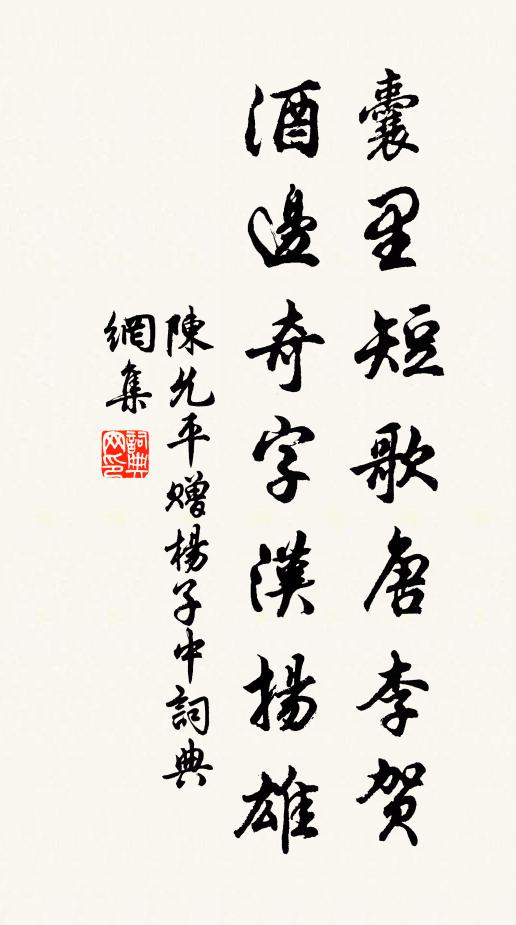 囊里短歌唐李賀
酒邊奇字漢揚雄
陳允平贈楊子中詞典
網集
詞典网印